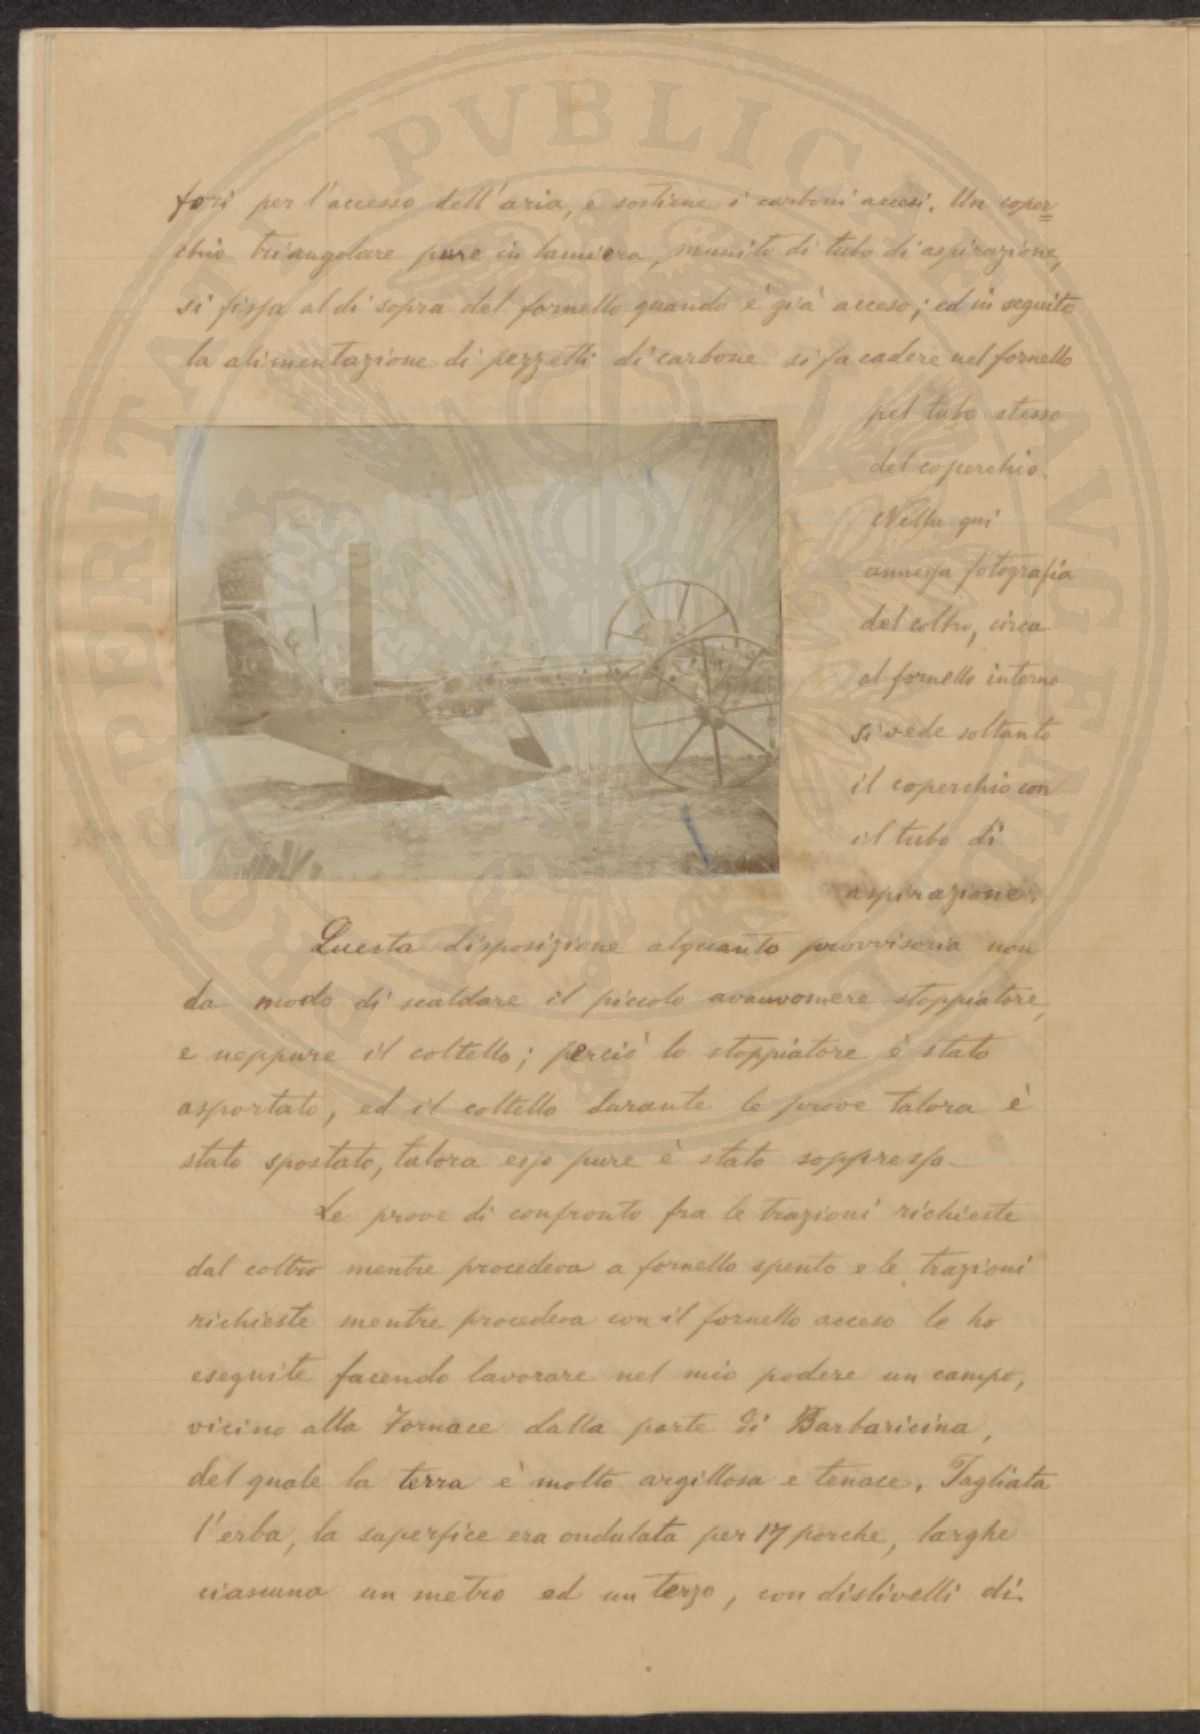 fori per l'accesso dell'aria, e sostiene i carboni accesi. Un coper=
chio triangolare pure in lamiera, munito di tubo di aspirazione,
si fissa al di sopra del fornello quando è già acceso; ed in seguito
la alimentazione di pezzetti di carbone si fa cadere nel fornello
pel tubo stesso
del coperchio.
Nella qui
annessa fotografia
del coltro, circa
al fornello interno
si vede soltanto
il coperchio con
il tubo di
aspirazione.
Questa disposizione alquanto provvisoria non
da modo di scaldare il piccolo avanvomere stoppiatore,
e neppure il coltello; perciò lo stoppiatore è stato
asportato, ed il coltello durante le prove talora è
stato spostato, talora esso pure è stato soppresso.
Le prove di confronto fra le trazioni richieste
dal coltro mentre procedeva a fornello spento e le trazioni
richieste mentre procedeva con il fornello acceso le ho
eseguite facendo lavorare nel mio podere un campo,
vicino alla Fornace dalla parte di Barbaricina,
del quale la terra è molto argillosa e tenace. Tagliata
l'erba, la superfice era ondulata per 17 porche, larghe
ciascuna un metro ed un terzo, con dislivelli di
PVBLICAE
PROSPERITATI
AVGENDAE